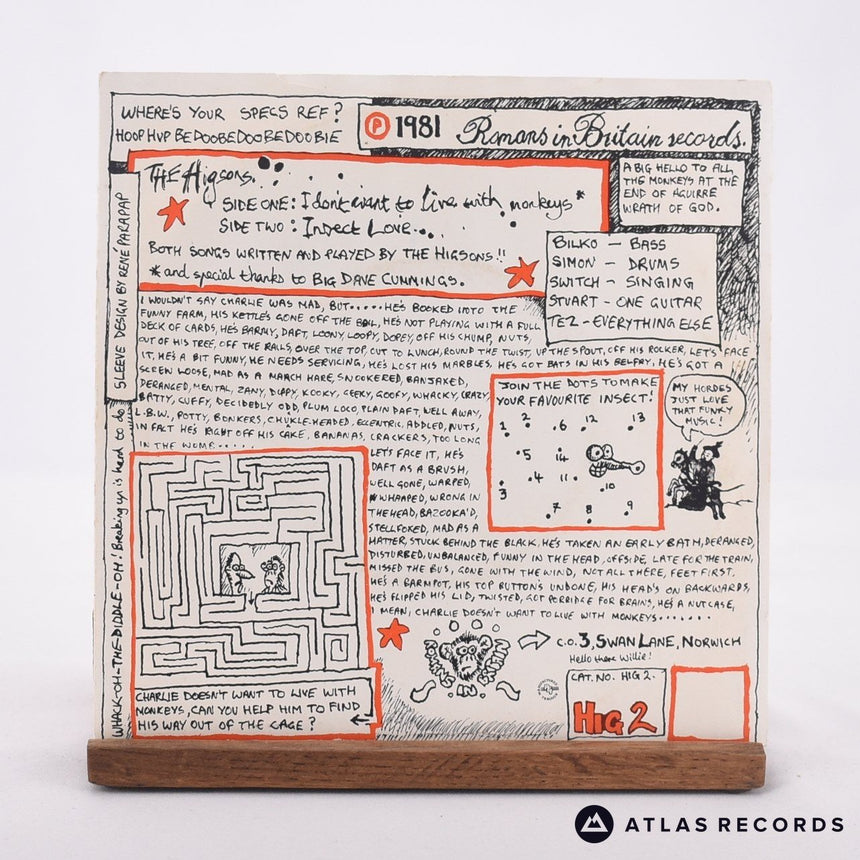 WHERE'S YOUR SPECS REF?
HOOP HUP BEDOOBEDOOBEDOOBIE
Ⓟ 1981 Romans in Britain records.
THE Higsons.
SIDE ONE: I don't want to live with monkeys*
SIDE TWO: Insect Love...
BOTH SONGS WRITTEN AND PLAYED BY THE HIGSONS!!
*and special thanks to BIG DAVE CUMMINGS.
A BIG HELLO TO ALL
THE MONKEYS AT THE
END OF AGUIRRE
WRATH OF GOD.
BILKO — BASS
SIMON — DRUMS
SWITCH — SINGING
STUART - ONE GUITAR
TEZ - EVERYTHING ELSE
SLEEVE DESIGN BY RENÉ PARAPAP
WHACK-OH-THE-DIDDLE-OH! Breaking up is hard to do
I WOULDN'T SAY CHARLIE WAS MAD, BUT..... HE'S BOOKED INTO THE
FUNNY FARM, HIS KETTLE'S GONE OFF THE BOIL, HE'S NOT PLAYING WITH A FULL
DECK OF CARDS, HE'S BARMY, DAFT, LOONY, LOOPY, DOPEY, OFF HIS CHUMP, NUTS,
OUT OF HIS TREE, OFF THE RAILS, OVER THE TOP, OUT TO LUNCH, ROUND THE TWIST, UP THE SPOUT, OFF HIS ROCKER, LET'S FACE
IT, HE'S A BIT FUNNY, HE NEEDS SERVICING, HE'S LOST HIS MARBLES, HE'S GOT BATS IN HIS BELFRY, HE'S GOT A
SCREW LOOSE, MAD AS A MARCH HARE, SNOOKERED, BANJAXED,
DERANGED, MENTAL, ZANY, DIPPY, KOOKY, GEEKY, GOOFY, WHACKY, CRAZY,
BATTY, CUFFY, DECIDEDLY ODD, PLUM LOCO, PLAIN DAFT, WELL AWAY,
L.B.W., POTTY, BONKERS, CHUKLE-HEADED, ECCENTRIC, ADDLED, NUTS,
IN FACT HE'S RIGHT OFF HIS CAKE, BANANAS, CRACKERS, TOO LONG
IN THE WOMB.....
LET'S FACE IT, HE'S
DAFT AS A BRUSH,
WELL GONE, WARPED,
WHAMPED, WRONG IN
THE HEAD, BAZOOKA'D,
STELLFOXED, MAD AS A
HATTER, STUCK BEHIND THE BLACK. HE'S TAKEN AN EARLY BATH, DERANGED,
DISTURBED, UNBALANCED, FUNNY IN THE HEAD, OFFSIDE, LATE FOR THE TRAIN,
MISSED THE BUS, GONE WITH THE WIND, NOT ALL THERE, FEET FIRST,
HE'S A BARMPOT, HIS TOP BUTTON'S UNDONE, HIS HEAD'S ON BACKWARDS,
HE'S FLIPPED HIS LID, TWISTED, GOT PORRIDGE FOR BRAINS, HE'S A NUTCASE,
I MEAN, CHARLIE DOESN'T WANT TO LIVE WITH MONKEYS.......
JOIN THE DOTS TO MAKE
YOUR FAVOURITE INSECT!
1 2 6 12 13
5 14
3 4 11 10
7 8 9
MY HORDES
JUST LOVE
THAT FUNKY
MUSIC!
CHARLIE DOESN'T WANT TO LIVE WITH
MONKEYS, CAN YOU HELP HIM TO FIND
HIS WAY OUT OF THE CAGE?
ROMANS
IN
BRITAIN
C.O. 3, SWAN LANE, NORWICH
Hello there Willie!
CAT. NO. HIG 2.
HIG 2
ATLAS RECORDS